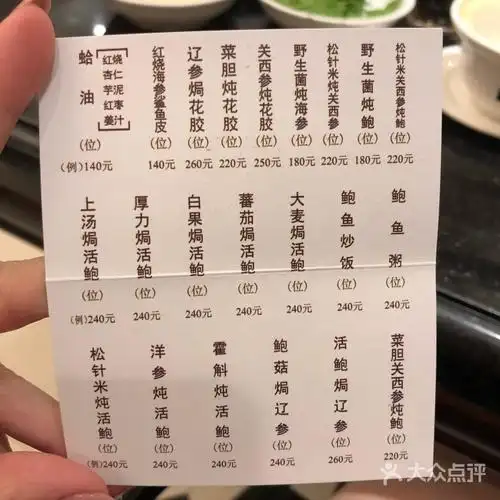 蛤油 红烧 杏仁 芋泥 红枣 姜汁 （位） （例）140元
红烧海参鲨鱼皮 （位） 140元
辽参焗花胶 （位） 260元
菜胆炖花胶 （位） 220元
关西参炖花胶 （位） 250元
野生菌炖海参 （位） 180元
松针米炖关西参 （位） 220元
野生菌炖鲍 （位） 180元
松针米关西参炖鲍 （位） 220元
上汤焗活鲍 （位） （例）240元
厚力焗活鲍 （位） 240元
白果焗活鲍 （位） 240元
蕃茄焗活鲍 （位） 240元
大麦焗活鲍 （位） 240元
鲍鱼炒饭 （位） 240元
鲍鱼粥 （位） 240元
松针米炖活鲍 （位） （例）240元
洋参炖活鲍 （位） 240元
霍斛炖活鲍 （位） 240元
鲍菇焗辽参 （位） 240元
活鲍焗辽参 （位） 260元
菜胆关西参炖鲍 （位） 220元
大众点评